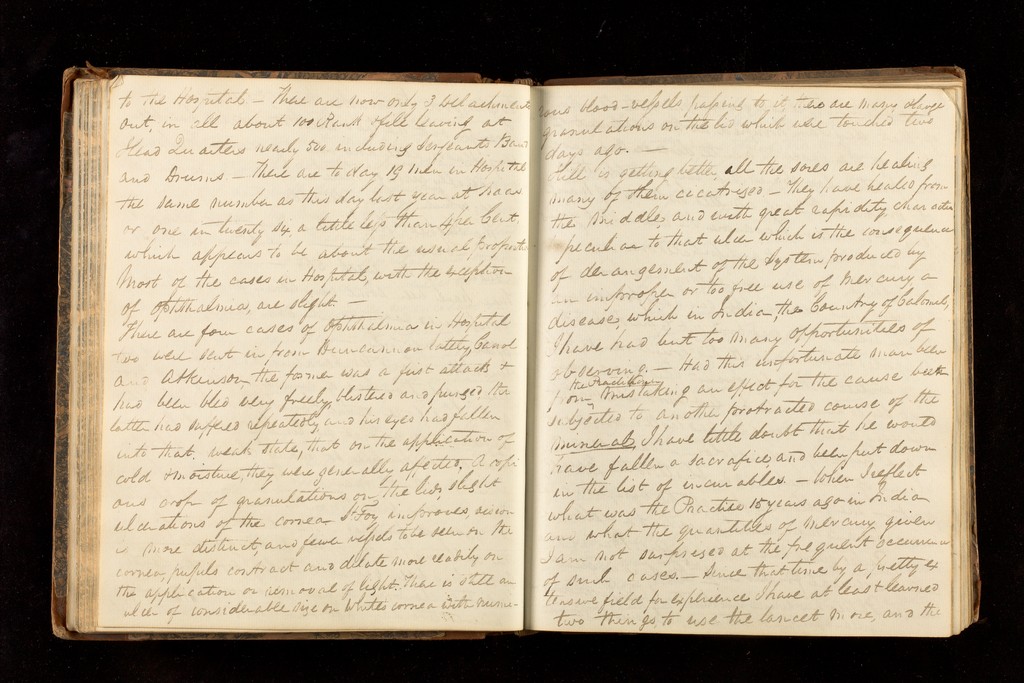 to the Hospital. — There are now only 3 Detachments
out, in all about 100 Rank & file leaving at
Head Quarters nearly 500 including Sergeants Band
and Drums. — There are to day 19 men in Hospital
the same number as this day last year at Naas
or one in twenty six a little less than 4 per Cent
which appears to be about the usual proportion
Most of the cases in Hospital, with the exception
of Ophthalmia, are slight. —
There are four cases of Ophthalmia in Hospital
two were sent in from Duncannon lately, Carrol
and Atkinson, the former was a first attack &
had been bled very freely, blistered and purged, the
latter had suffered repeatedly, and his eyes had fallen
into that weak state, that on the application of
cold & moisture, they were generally affected. A copi
ous crop of granulations on the lids, slight
ulcerations of the cornea. Foy improves, vision
is more distinct, and fewer vessels to be seen on the
cornea, pupils contract and dilate more readily on
the application or removal of light. There is still an
ulcer of considerable size on Whites cornea with nume-
rous blood-vessels passing to it, there are many large
granulations on the lid which were touched two
days ago. —
Hill is getting better, all the sores are healing
many of them cicatrised — They have healed from
the Middle and with great rapidity, character
peculiar to that ulcer which is the consequence
of derangement of the System produced by
an improper or too free use of Mercury, a
disease which in India, the Country of Calomel,
I have had but too many opportunities of
observing. — Had this unfortunate man been
from the Practitioner mistaking an effect for the cause been
subjected to another protracted course of the
mineral, I have little doubt that he would
have fallen a sacrifice, and been put down
in the list of incurables. — When I reflect
what was the Practice 15 years ago in India
and what the quantities of Mercury given
I am not surprised at the frequent occurrence
of such cases. — Since that time by a pretty ex
tensive field for experience I have at least learned
two things, to use the lancet more, and the